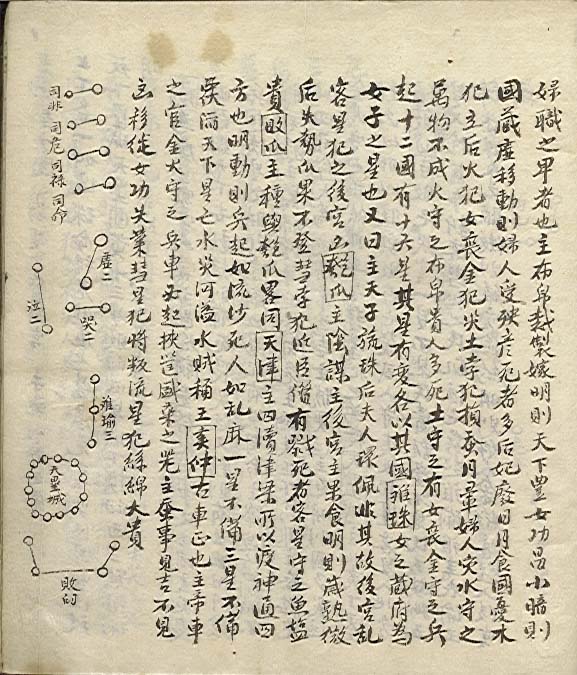 婦職之卑者也主布帛裁製嫁明則天下豊女功昌小暗則
國藏虛移動則婦人受殃產死者多后妃廢日月食國憂水
犯主后火犯女喪金犯災土孛犯損蚕月暈婦人灾水守之
萬物不成火守之布帛貴人多死土守之有女喪金守之兵
起十二國有十六星其星有变各以其國離珠女之藏府為
女子之星也又曰主天子旒珠后夫人環佩非其故後宮乱
客星犯之後宮凶匏瓜主陰謀主後宮主果食明則歲熟微
后失勢瓜果不登彗孛犯近臣僭有戮死者客星守之魚塩
貴敗瓜主種與匏瓜畧同天津主四瀆津梁所以渡神通四
方也明動則兵起如流沙死人如乱麻一星不備三星不備
天下星之水災河溢水賊稱王奚仲古車正也主帝車
之官金火守之兵車必起
凶移徙女功失業彗星犯將叛流星犯絲綿大貴
司非 司危 司祿 司命
虛二
哭二
泣二
離瑜三
天壘城
敗臼